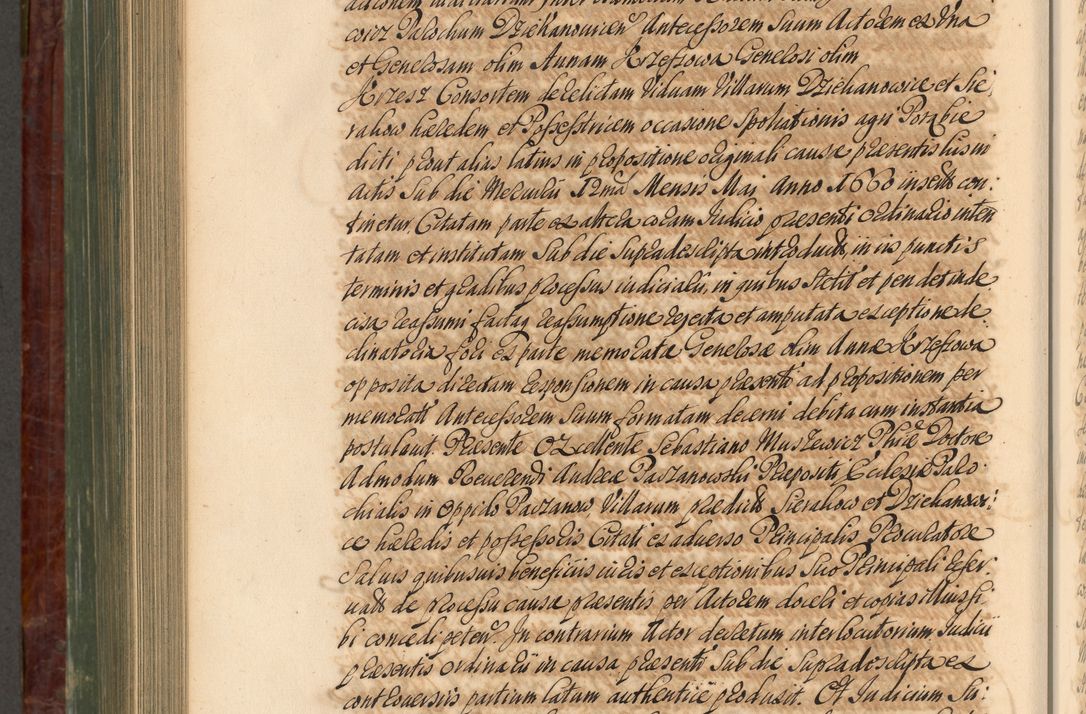 coviz Parochum Dziekanovien Antecessorem Suum Actorem ex Una
et Generosam olim Annam Krzeszowa Generosi olim
Krzesz Consortem derelictam Viduam Villarum Dziekanowice et Sie,
rakow hæredem et Possestricem occasione Spoliationis agri Porąbie
dicti prout alias latius in propositione originali causæ præsentis huic in
actis Sub die Mercurii 12ma Mensis Mai Anno 1660 insertt con:
tinetur Citatam parte ex altera coram Iudicio præsenti ordinario inten
tatam et institutam Sub die Supradescripta introductt, in iis punctis
terminis et gradibus processus iudicialis, in quibus Stetit et pendet inde
cisa reassumi factaq reassumptione rejecta et amputata exceptione de
clinatoria fori ex parte memorata Generosæ olim Annæ Krzeszowa
opposita directam responsionem in causa præsenti ad propositionem per
memoratt Antecessorem Suum formatam decerni debita cum instantia
postulavit. Præsente Excellente Sebastiano Muszewicz Phiæ Doctore
Admodum Reverendi Andreæ Paczanowski Præpositi Ecclesiæ Paro
chialis in Oppido Paczanow Villarum prædictt Sierakow et Dziekanowi:
ce hæredis et possessoris Citati ex adverso Principalis Procuratore
Salvis quibusvis beneficiis iuris et exceptionibus Suo Principali reser:
vatt de processu causæ præsentis per Actorem doceri et copias illius si,
bi concedi peten. In contrarium Actor decretum interlocutorium Iudicii
præsentis ordinarii in causa præsenti Sub die Supradoscripta ex
controversiis partium latum authentice produxit. Et Iudicium Su: